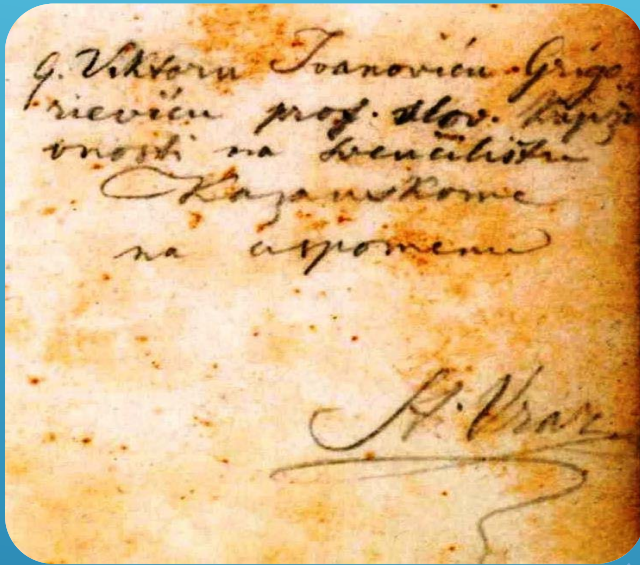 g. Viktoru Ivanoviću Grigo-
rieviću prof. slov. knjiž
vnosti na sveučilištu
Kazanskome
na uspomenu
St. Vraz